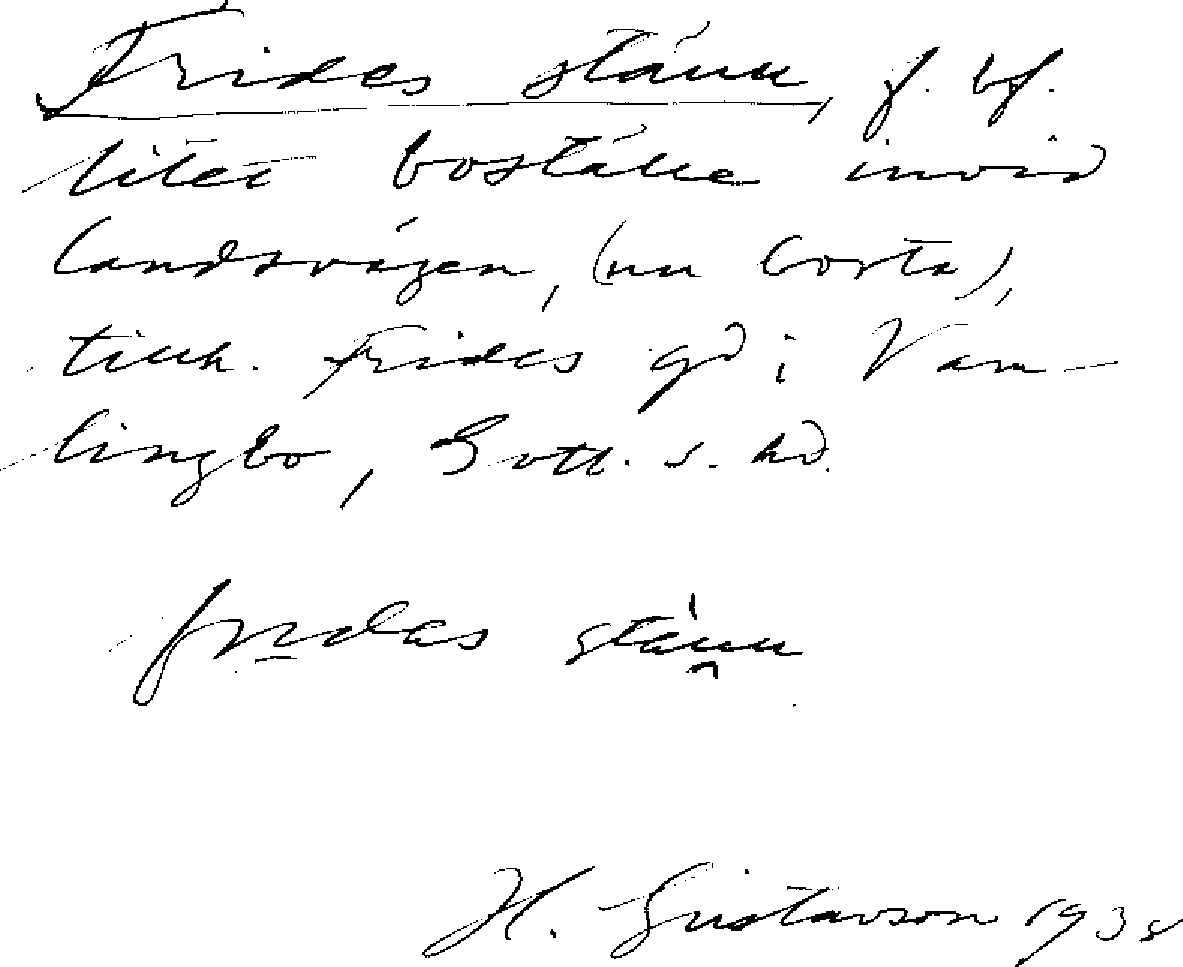 Frides stäuu, f. bf.
litet boställe invid
landsvägen, (nu borta),
tillh. Frides gd i Vam-
lingbo, Gotl. s. hd.
fridas stäuu
H. Gustavson 1938